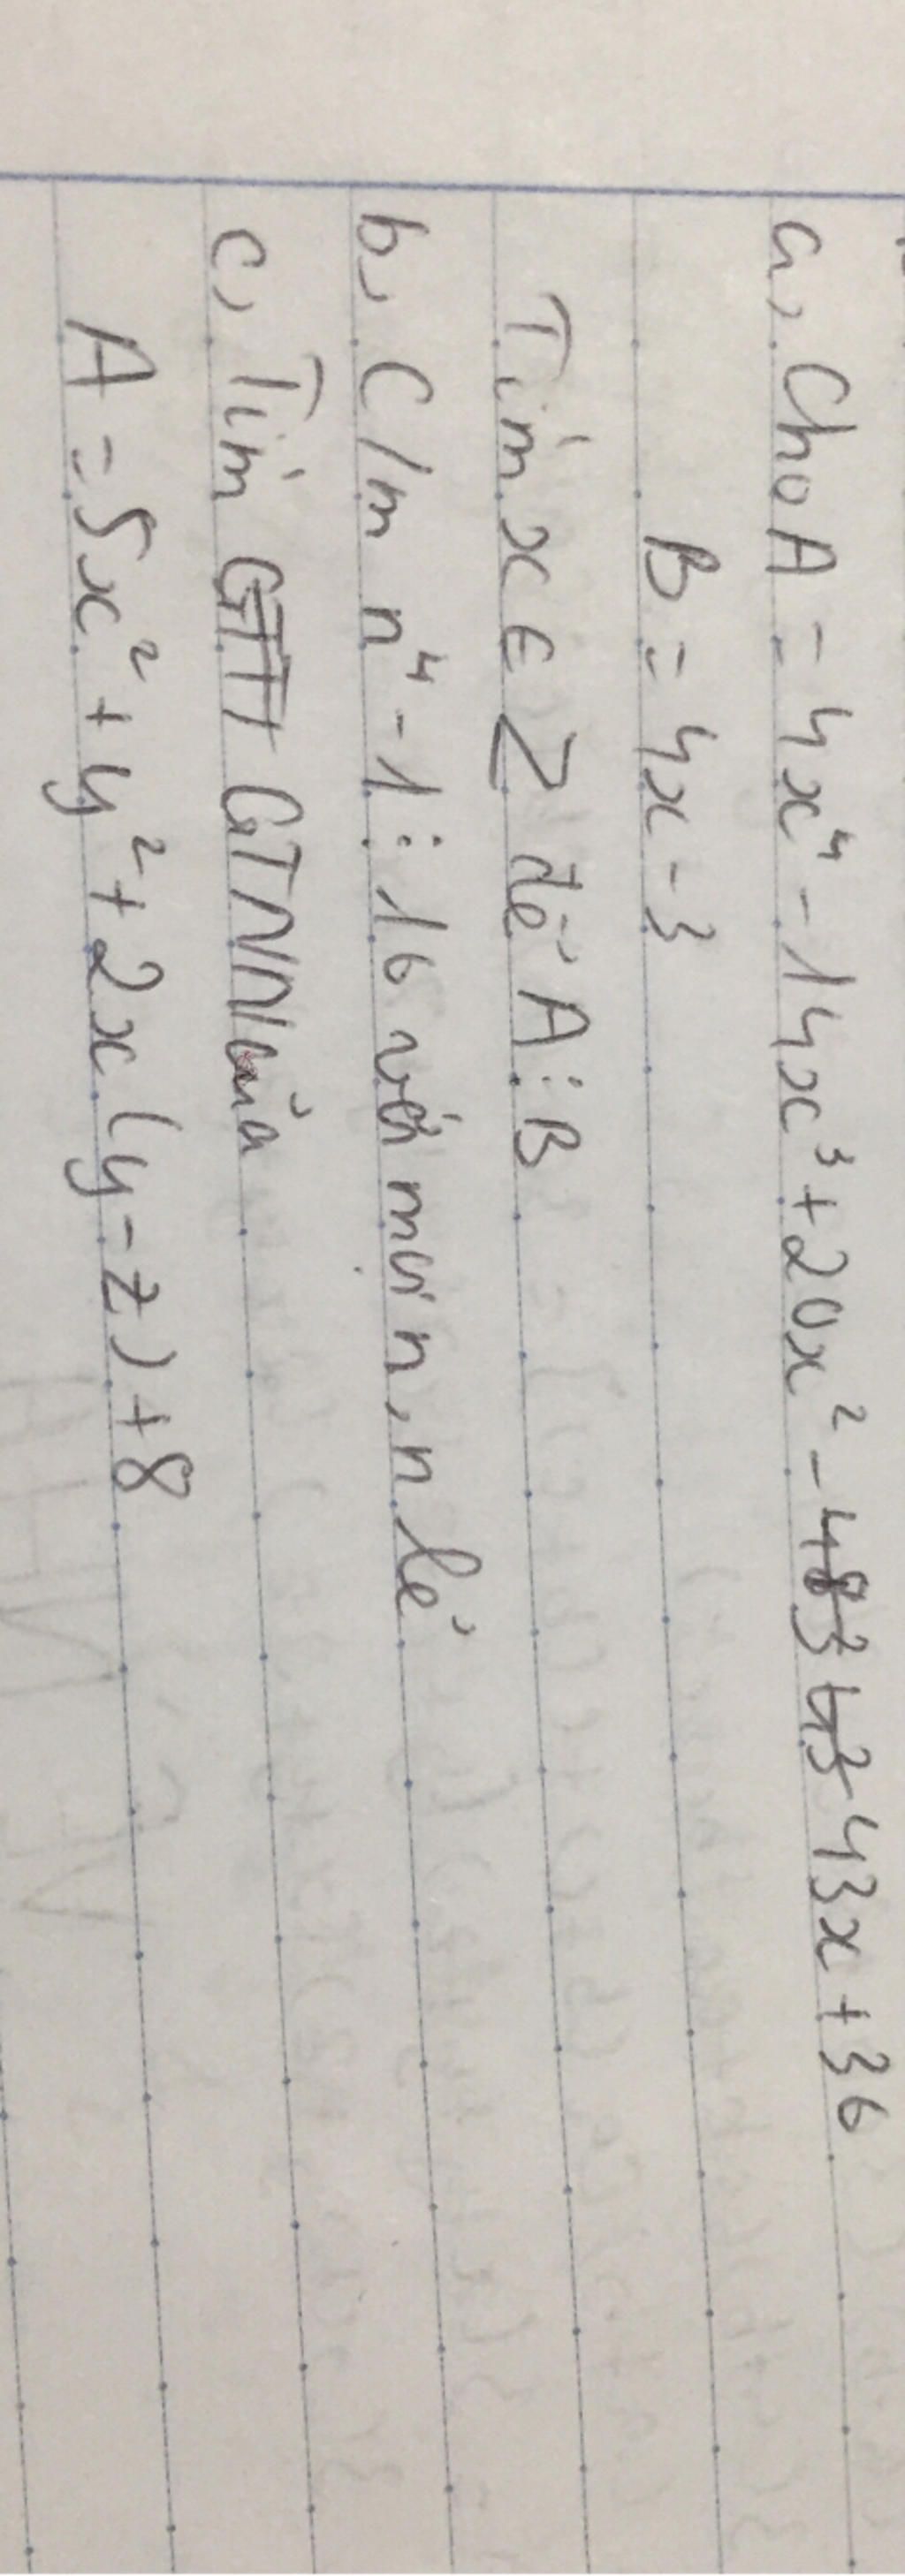 a, Cho A = 4x⁴ - 14x³ + 20x² - 43x + 36
B = 4x - 3
Tìm x ∈ Z để A ⋮ B
b, C/m n⁴ - 1 ⋮ 16 với mọi n, n lẻ
c, Tìm GTNN của
A = 5x² + y² + 2x (y - z) + 8